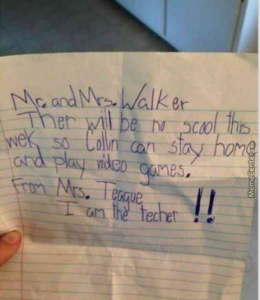 Mr. and Mrs. Walker
Ther will be no scool this
wek, so Collin can stay home
and play video games.
From Mrs. Teague
I am the techer !!
MemeCenter